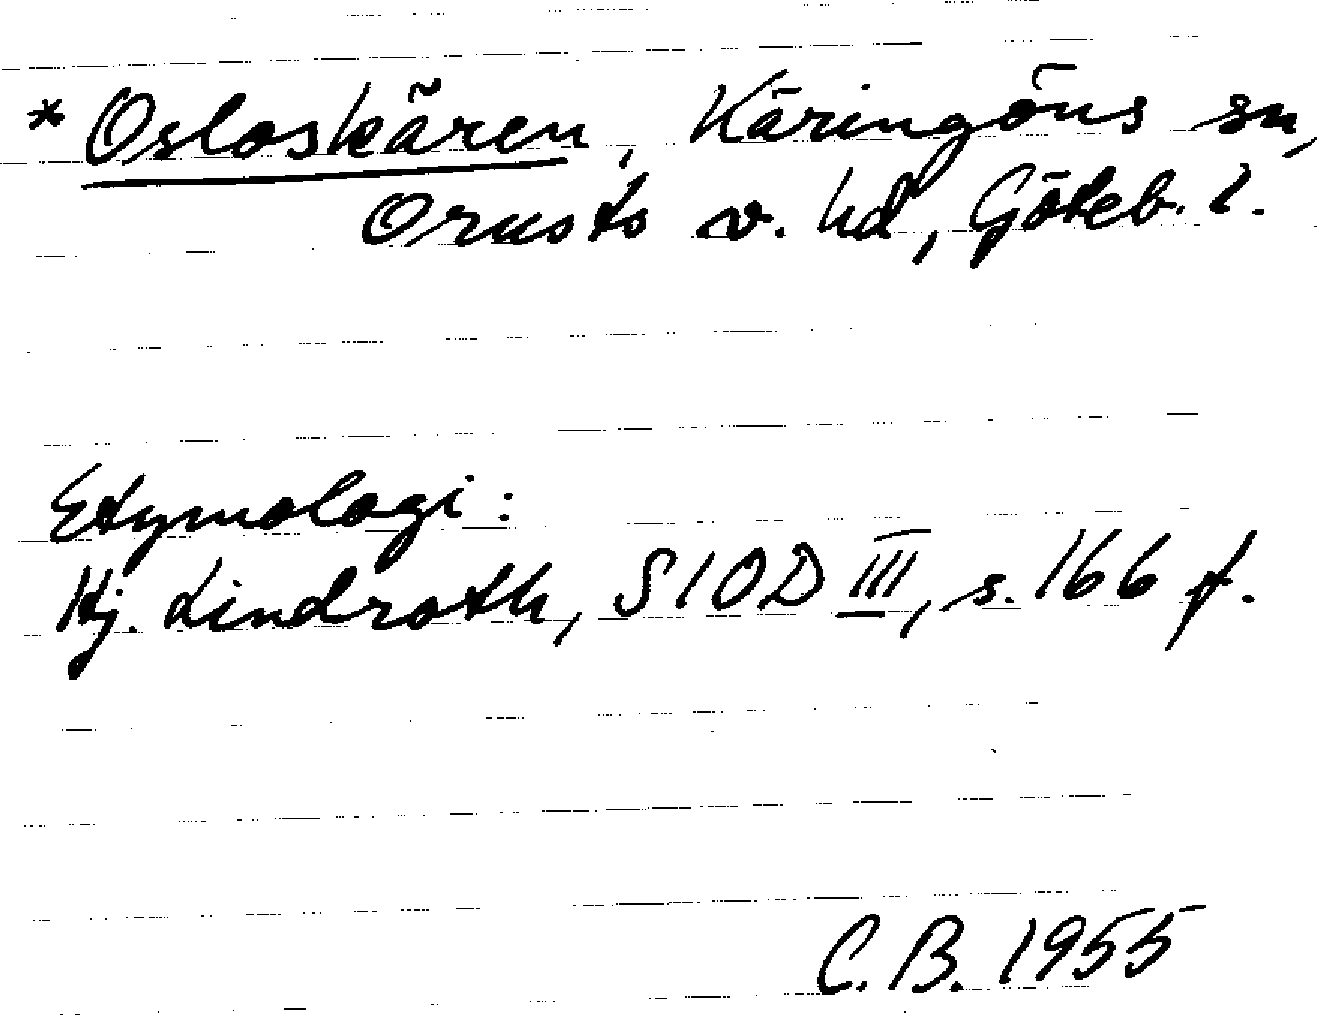 * Osloskären, Käringöns sn,
Orusts v. hd, Göteb. l.
Etymologi:
Hj. Lindroth, SIOD III, s. 166 f.
C. B. 1955